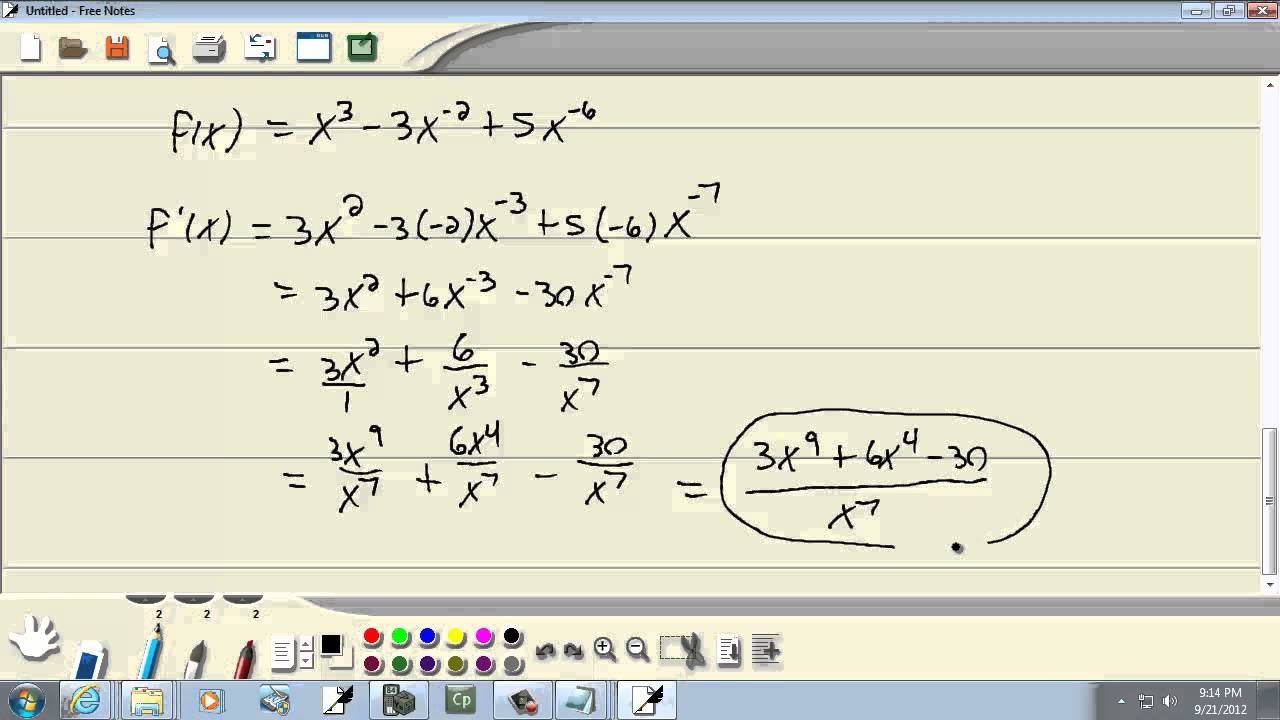 Untitled - Free Notes
f(x) = x³ - 3x⁻² + 5x⁻⁶
f'(x) = 3x² - 3(-2)x⁻³ + 5(-6)x⁻⁷
= 3x² + 6x⁻³ - 30x⁻⁷
= 3x²/1 + 6/x³ - 30/x⁷
= 3x⁹/x⁷ + 6x⁴/x⁷ - 30/x⁷ = (3x⁹ + 6x⁴ - 30)/x⁷
2 2 2
Cp
9:14 PM
9/21/2012